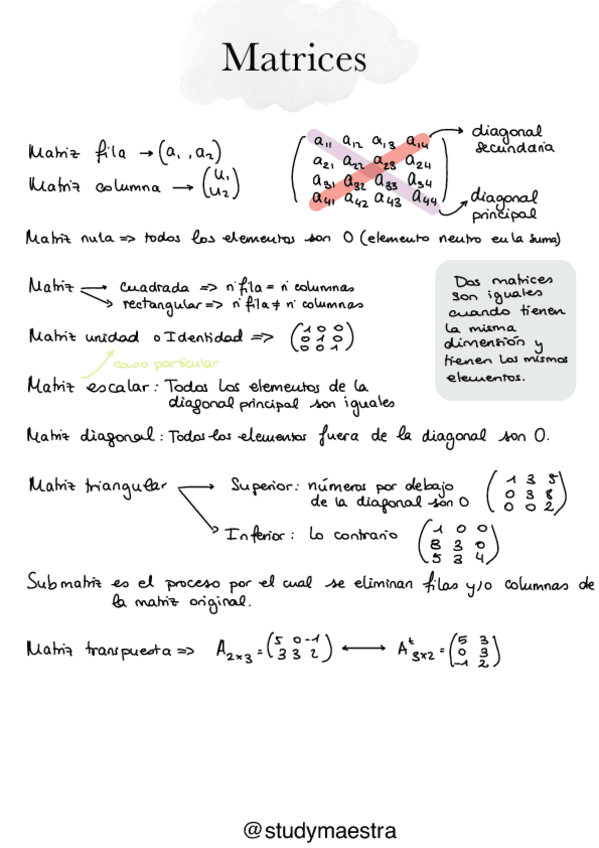 Matrices
Matriz fila → (a₁, a₂)
Matriz columna → (u₁
u₂)
(a₁₁ a₁₂ a₁₃ a₁₄
a₂₁ a₂₂ a₂₃ a₂₄
a₃₁ a₃₂ a₃₃ a₃₄
a₄₁ a₄₂ a₄₃ a₄₄)
diagonal
secundaria
diagonal
principal
Matriz nula => todos los elementos son 0 (elemento neutro en la suma)
Matriz → cuadrada => nº fila = nº columnas
→ rectangular => nº fila ≠ nº columnas
Dos matrices
son iguales
cuando tienen
la misma
dimensión y
tienen los mismos
elementos.
Matriz unidad o Identidad => (1 0 0
0 1 0
0 0 1)
caso particular
Matriz escalar: Todos los elementos de la
diagonal principal son iguales
Matriz diagonal: Todos los elementos fuera de la diagonal son 0.
Matriz triangular → Superior: números por debajo
de la diagonal son 0
(1 3 5
0 3 8
0 0 2)
→ Inferior: lo contrario
(1 0 0
8 3 0
5 3 4)
Submatriz es el proceso por el cual se eliminan filas y/o columnas de
la matriz original.
Matriz transpuesta => A₂ₓ₃ = (5 0 -1
3 3 2) ↔ Aᵗ₃ₓ₂ = (5 3
0 3
-1 2)
@studymaestra